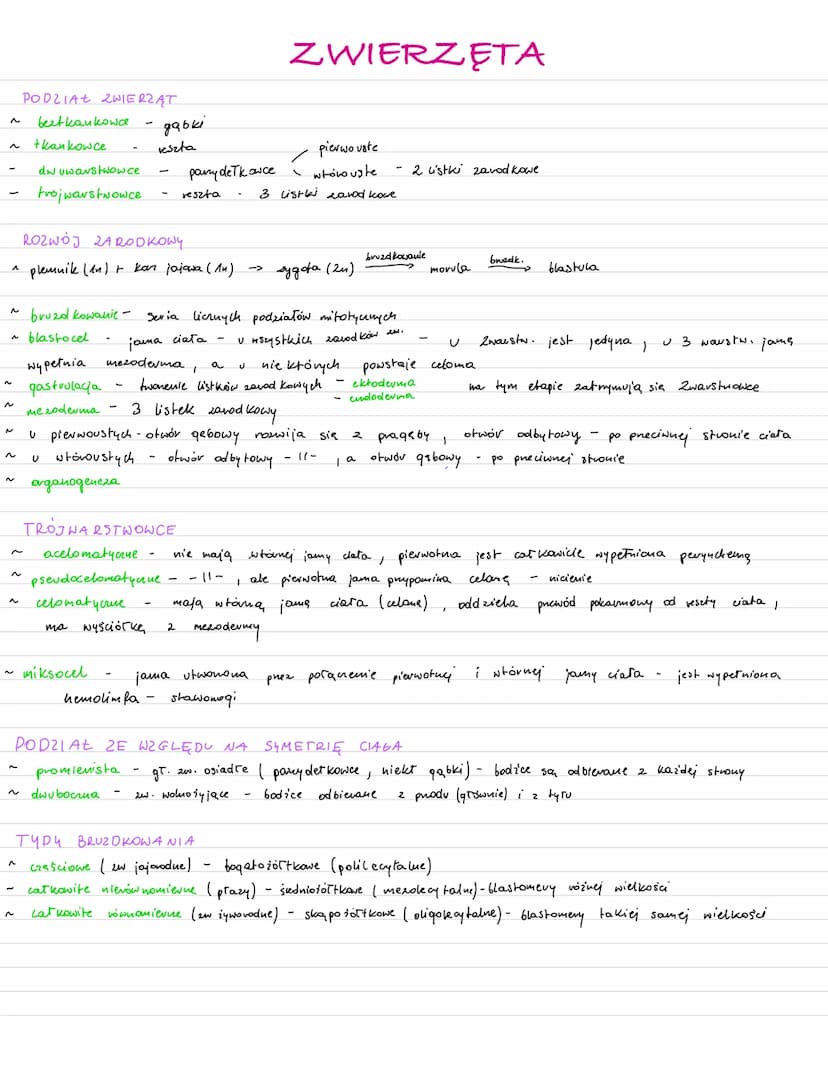 ZWIERZĘTA
PODZIAŁ ZWIERZĄT
~ beztkankowe - gąbki
~ tkankowe - reszta
pierwouste
- dwuwarstwowce - parzydełkowce wtórouste - 2 listki zarodkowe
- trójwarstwowce - reszta - 3 listki zarodkowe
ROZWÓJ ZARODKOWY
~ plemnik (1n) + kom jajowa (1n) → zygota (2n) bruzdkowanie → morula bruzdk. → blastula
~ bruzdkowanie - seria licznych podziałów mitotycznych
~ blastocel - jama ciała - u wszystkich zarodków zw. - u 2warstw. jest jedyna, u 3 warstw. jamę
wypełnia mezoderma, a u niektórych powstaje celoma
~ gastrulacja - tworzenie listków zarodkowych - ektoderma na tym etapie zatrzymują się 2warstwowce
- endoderma
~ mezoderma - 3 listek zarodkowy
~ u pierwoustych - otwór gębowy rozwija się z pragęby, otwór odbytowy - po przeciwnej stronie ciała
~ u wtóroustych - otwór odbytowy -||-, a otwór gębowy - po przeciwnej stronie
~ organogeneza
TRÓJWARSTWOWCE
~ acelomatyczne - nie mają wtórnej jamy ciała, pierwotna jest całkowicie wypełniona perynchemą
~ pseudocelomatyczne - -||-, ale pierwotna jama przypomina celomę - nicienie
~ celomatyczne - mają wtórną jamę ciała (celomę), oddziela przewód pokarmowy od reszty ciała,
ma wyściółkę z mezodermy
~ miksocel - jama utworzona przez połączenie pierwotnej i wtórnej jamy ciała - jest wypełniona
hemolimfą - stawonogi
PODZIAŁ ZE WZGLĘDU NA SYMETRIĘ CIAŁA
~ promienista - gł. zw. osiadłe (parzydełkowce, niekt gąbki) - bodźce są odbierane z każdej strony
~ dwuboczna - zw. wolnożyjące - bodźce odbierane z przodu (głównie) i z tyłu
TYPY BRUZDKOWANIA
~ częściowe (zw jajorodne) - bogatożółtkowe (polilecytalne)
~ całkowite nierównomierne (płazy) - średniożółtkowe (mezolecytalne) - blastomery różnej wielkości
~ całkowite równomierne (zw żyworodne) - skąpożółtkowe (oligolecytalne) - blastomery takiej samej wielkości